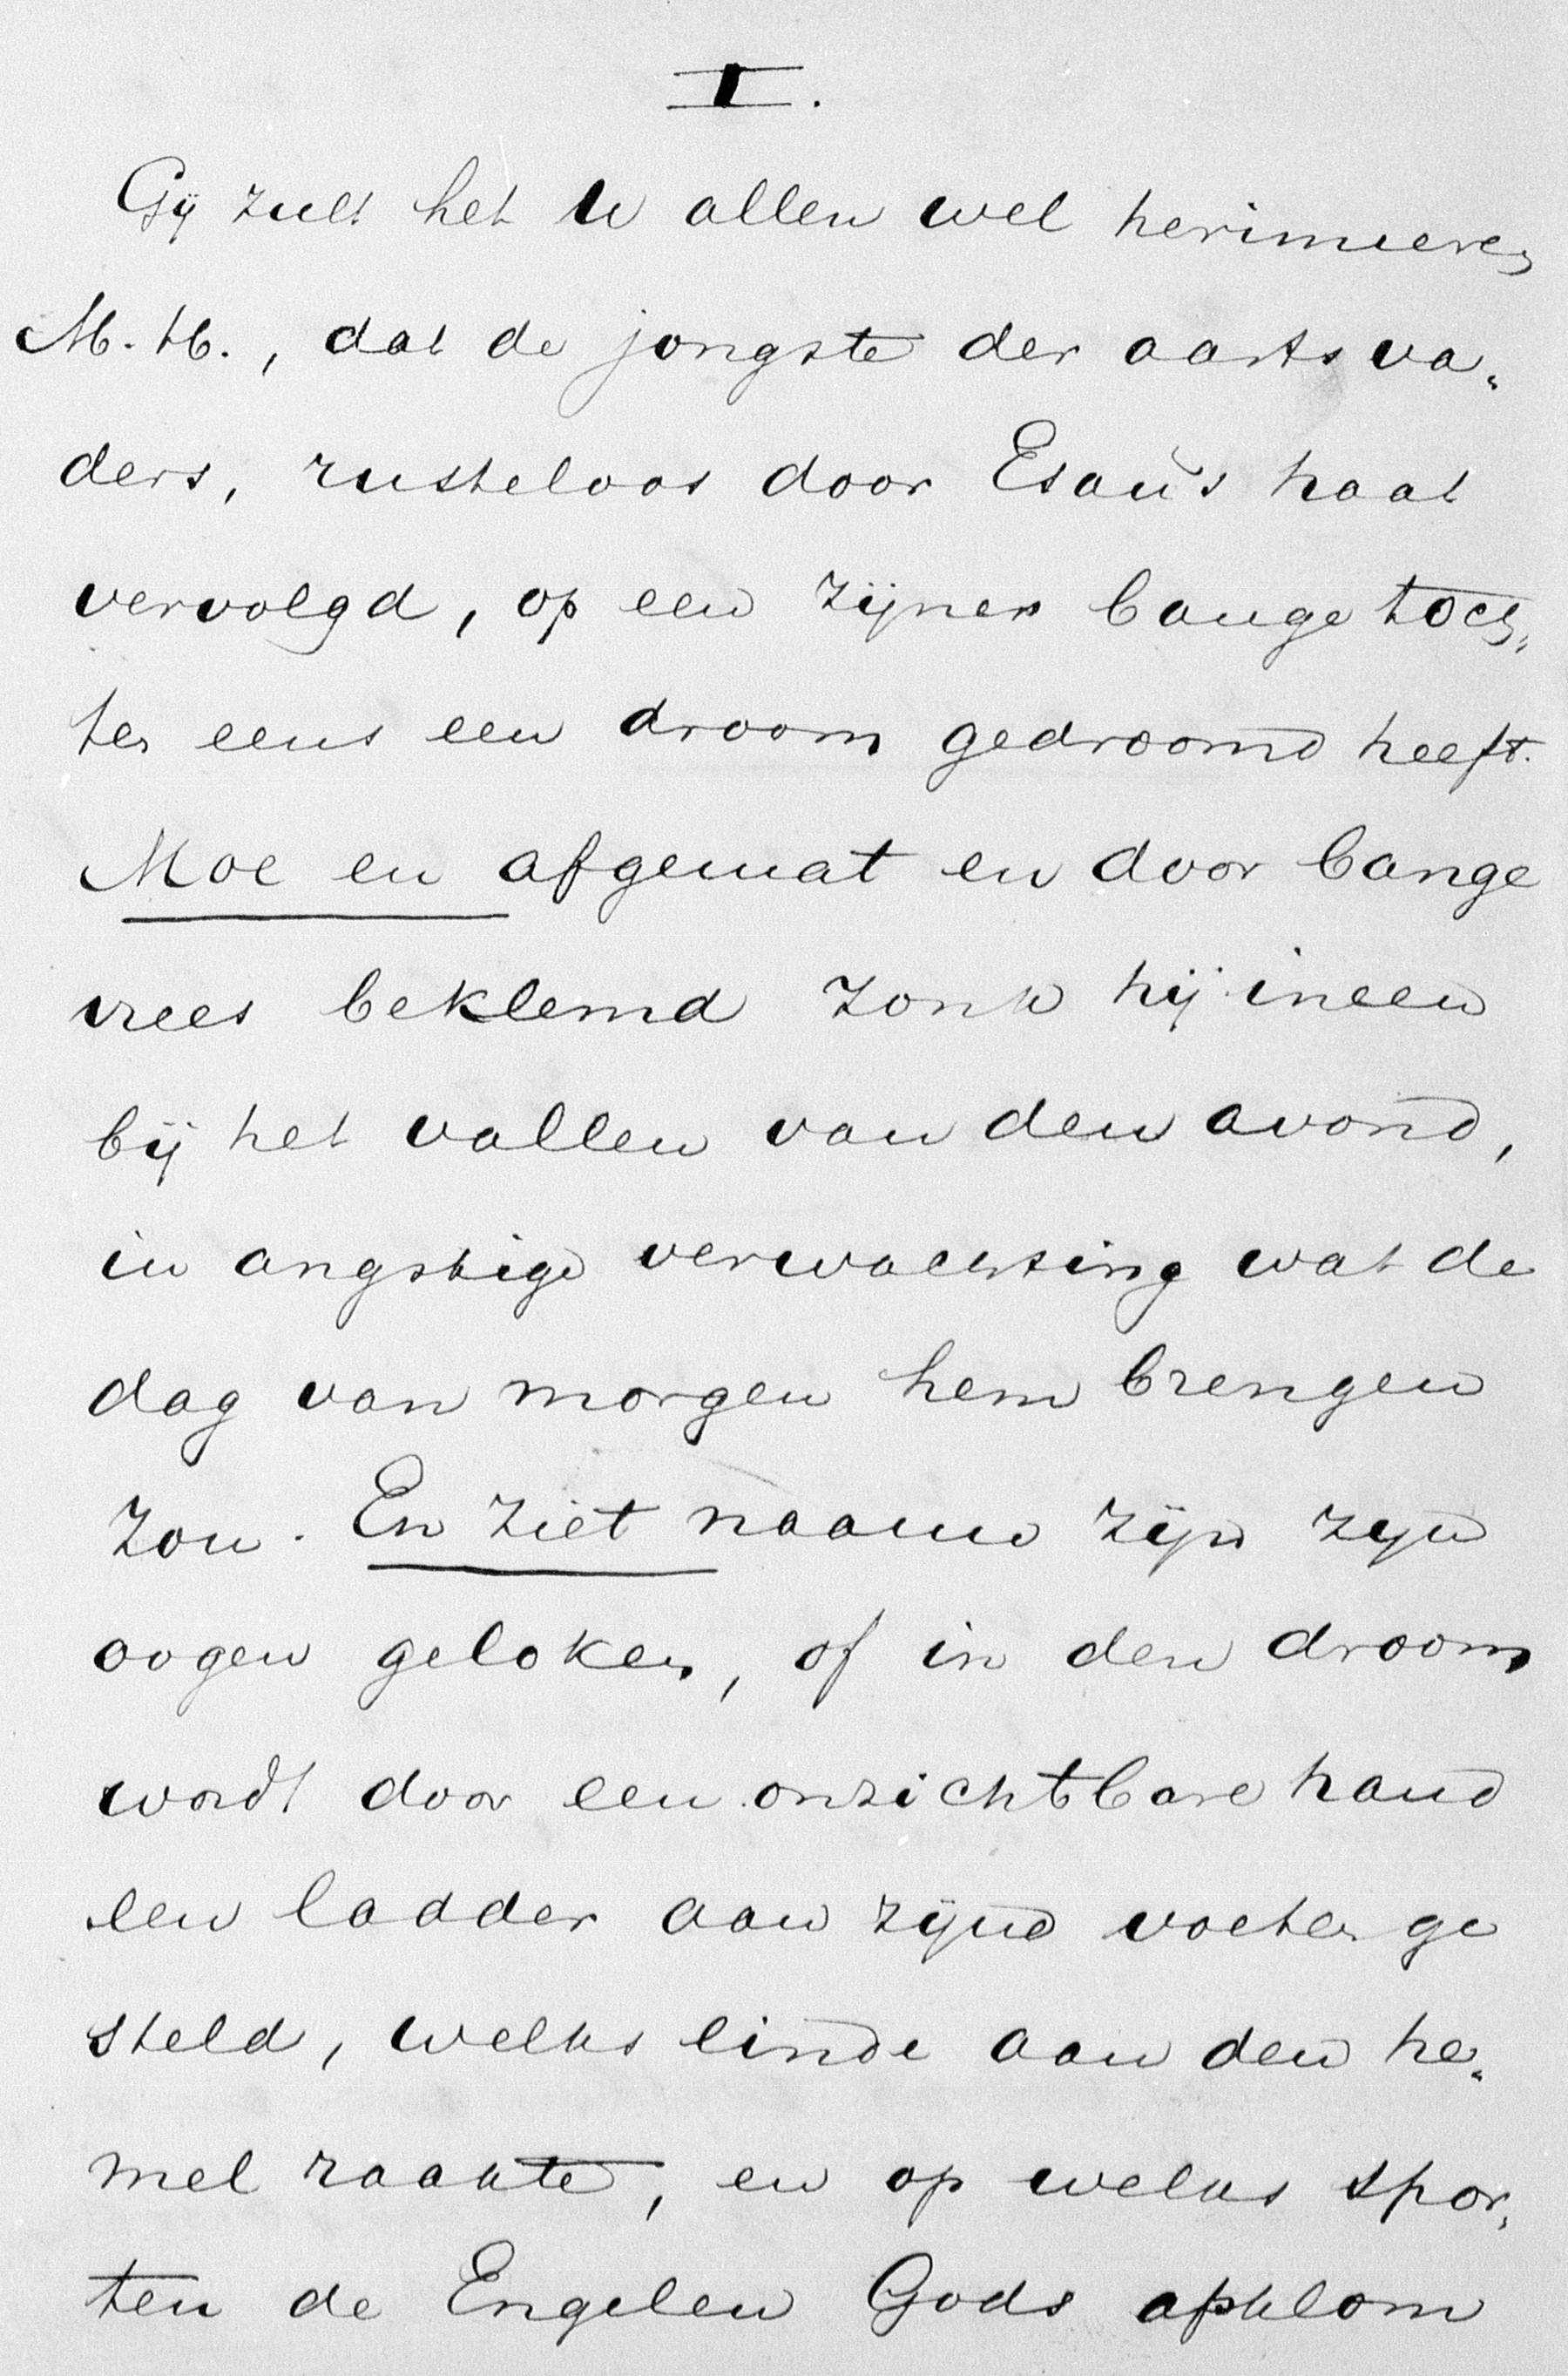 I.
Gij zult het U allen wel herinneren
M. H., dat de jongste der aartsva„
ders, rusteloos door Esau's haat
vervolgd, op een zijner bange toch„
ten eens een droom gedroomd heeft.
Moe en afgemat en door bange
vrees beklemd zonk hij ineen
bij het vallen van den avond,
in angstige verwachting wat de
dag van morgen hem brengen
zou. En ziet naauw zijn zijn
oogen geloken, of in den droom
wordt door een onzichtbare hand
een ladder aan zijne voeten ge
steld, welks einde aan den he„
mel raakte, en op welks spor„
ten de Engelen Gods opklom